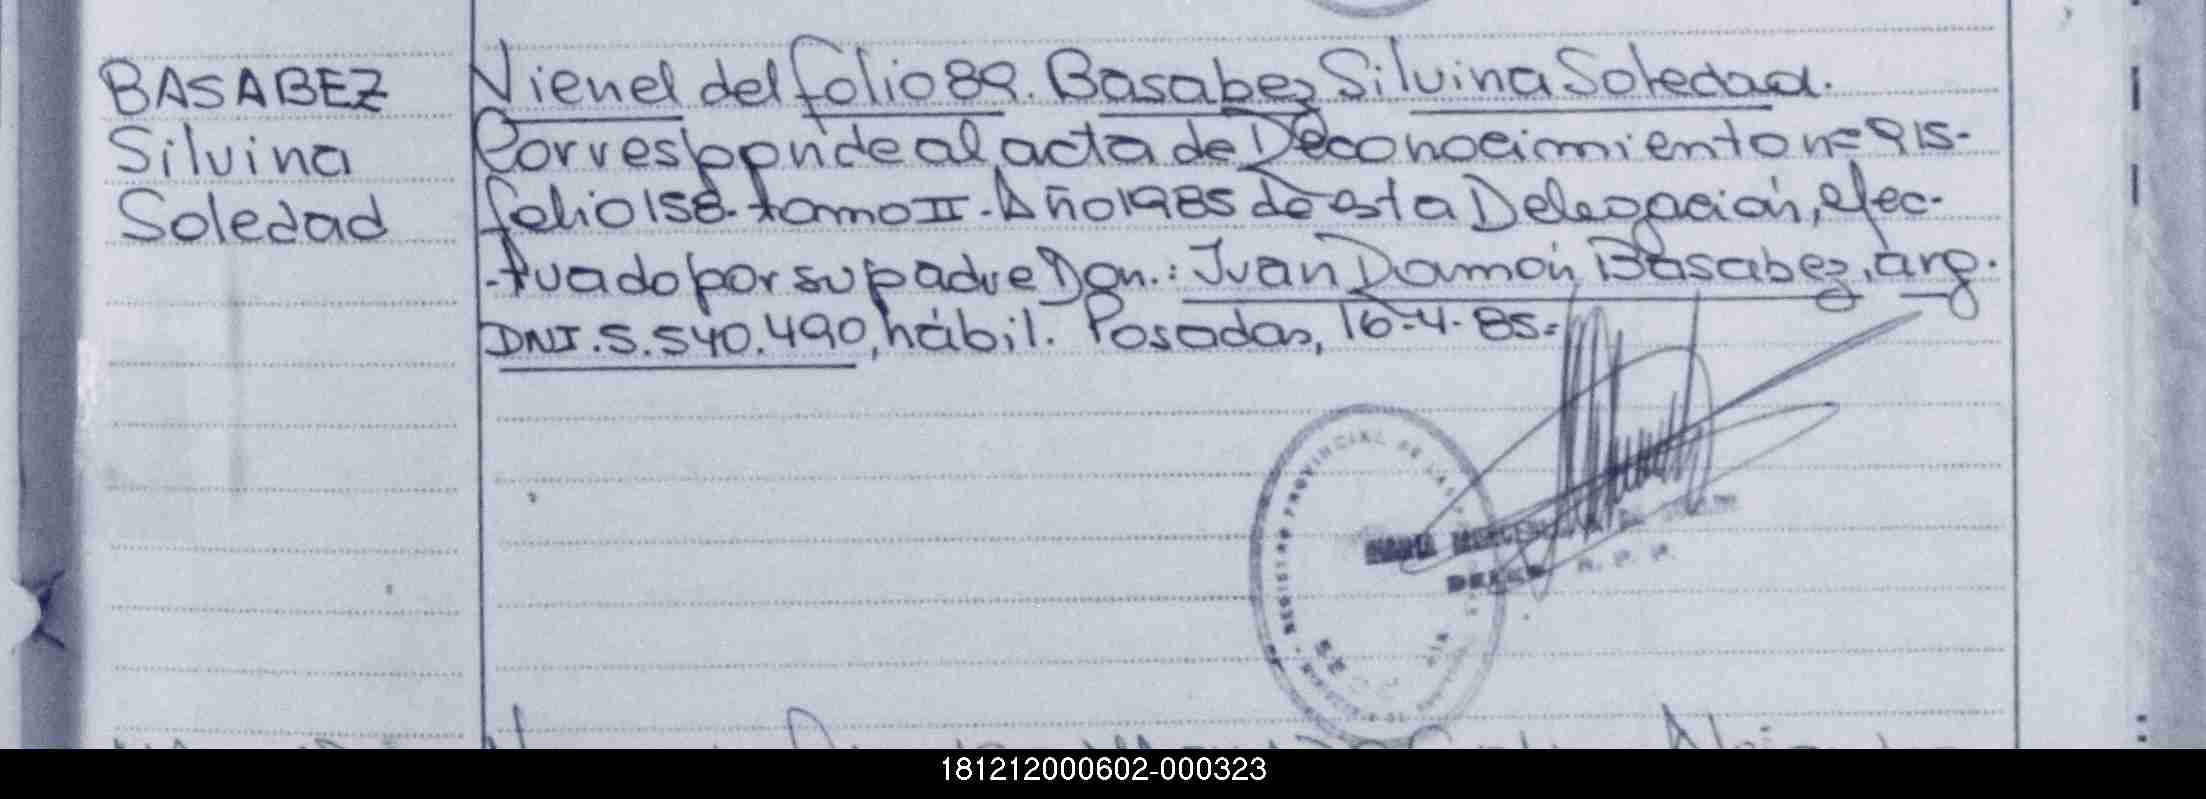 BASABEZ
Silvina
Soledad
Vienel del folio 89. Basabez Silvina Soledad.
Corresponde al acta de Deconocimiento nº 915-
folio 158- tomo II - Año 1985 de esta Delegación, efec-
-tuado por su padre Don.: Juan Damón Basabez, arg.
DNI. 5.540.490, hábil. Posadas, 16-4-85=
REGISTRO PROVINCIAL DE LAS
181212000602-000323